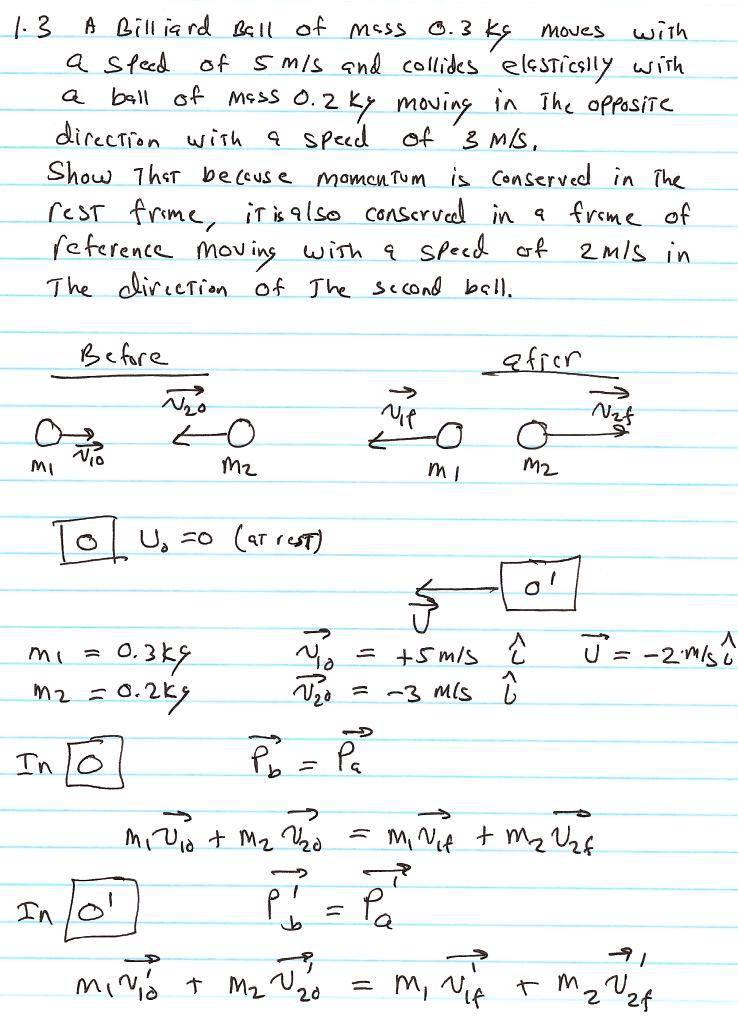 1.3 A Billiard Ball of mass 0.3 kg moves with
a speed of 5 m/s and collides elastically with
a ball of mass 0.2 kg moving in the opposite
direction with a speed of 3 m/s.
Show that because momentum is conserved in the
rest frame, it is also conserved in a frame of
reference moving with a speed of 2 m/s in
The direction of the second ball.
Before after
v⃗₂₀ v⃗₁f v⃗₂f
m₁ v⃗₁₀ m₂ m₁ m₂
O U₀ = 0 (at rest)
O'
U⃗
m₁ = 0.3 kg v⃗₁₀ = +5 m/s î U⃗ = -2 m/s î
m₂ = 0.2 kg v⃗₂₀ = -3 m/s î
In O P⃗b = P⃗a
m₁v⃗₁₀ + m₂v⃗₂₀ = m₁v⃗₁f + m₂v⃗₂f
In O' P⃗'b = P⃗'a
m₁v⃗'₁₀ + m₂v⃗'₂₀ = m₁v⃗'₁f + m₂v⃗'₂f